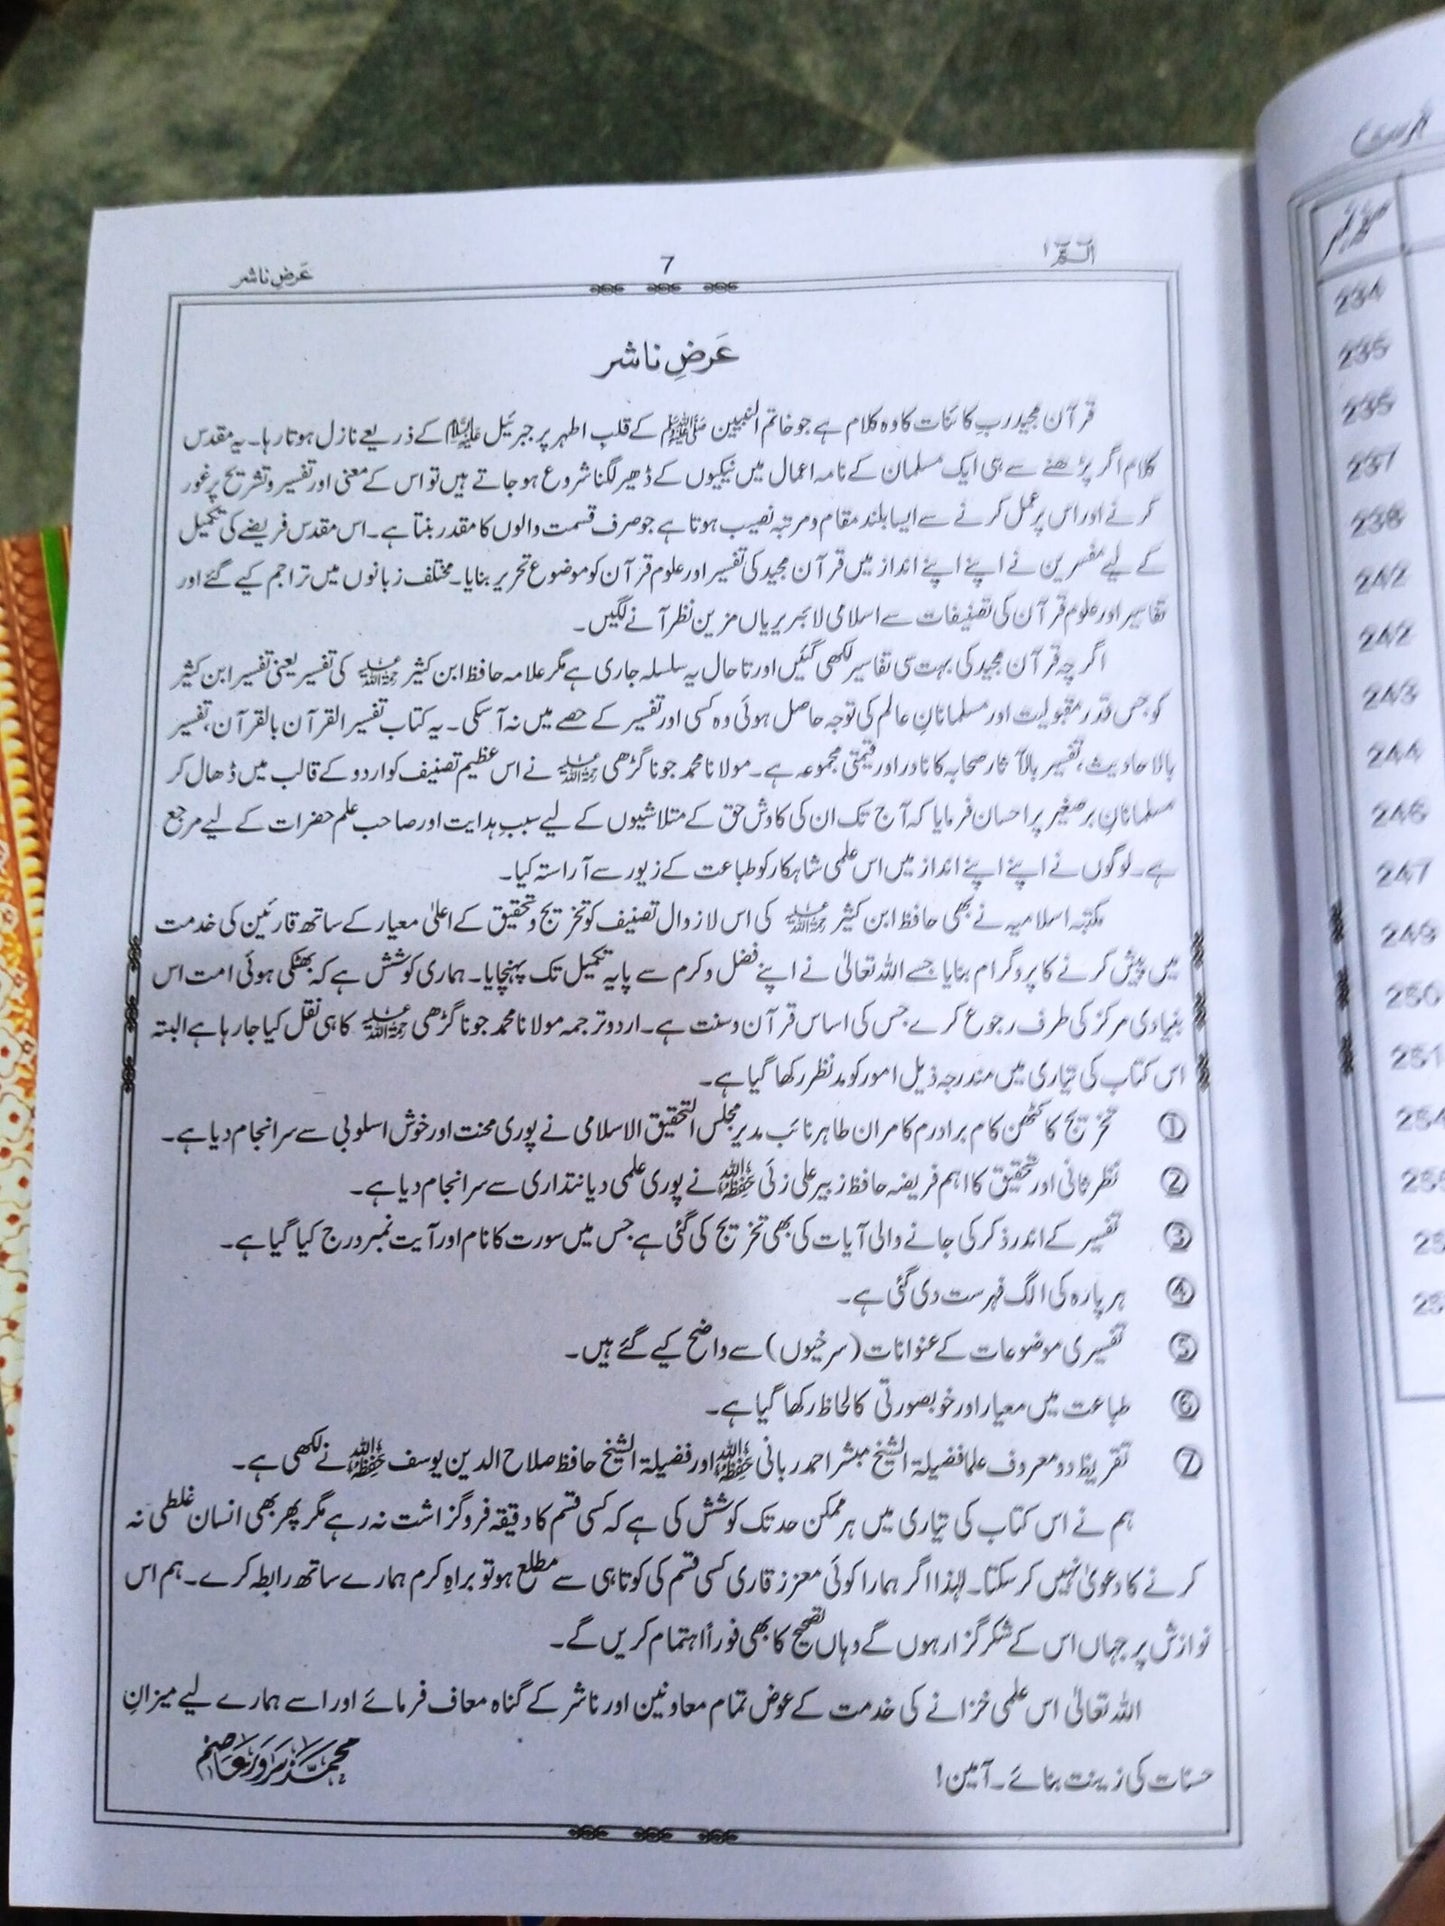 الٓمّٓ ۱
7
عَرضِ ناشر
عَرضِ ناشر
قرآن مجید ربِ کائنات کا وہ کلام ہے جو خاتم النبیین ﷺ کے قلبِ اطہر پر جبرئیل علیہ السلام کے ذریعے نازل ہوتا رہا۔ یہ مقدس
کلام اگر پڑھنے سے ہی ایک مسلمان کے نامہ اعمال میں نیکیوں کے ڈھیر لگنا شروع ہو جاتے ہیں تو اس کے معنی اور تفسیر و تشریح پر غور
کرنے اور اس پر عمل کرنے سے ایسا بلند مقام و مرتبہ نصیب ہوتا ہے جو صرف قسمت والوں کا مقدر بنتا ہے۔ اس مقدس فریضے کی تکمیل
کے لیے مفسرین نے اپنے اپنے انداز میں قرآن مجید کی تفسیر اور علوم قرآن کو موضوع تحریر بنایا۔ مختلف زبانوں میں تراجم کیے گئے اور
تفاسیر اور علوم قرآن کی تصنیفات سے اسلامی لائبریریاں مزین نظر آنے لگیں۔
اگرچہ قرآن مجید کی بہت سی تفاسیر لکھی گئیں اور تا حال یہ سلسلہ جاری ہے مگر علامہ حافظ ابن کثیر رحمۃ اللہ علیہ کی تفسیر یعنی تفسیر ابن کثیر
کو جس قدر مقبولیت اور مسلمانانِ عالم کی توجہ حاصل ہوئی وہ کسی اور تفسیر کے حصے میں نہ آسکی۔ یہ کتاب تفسیر القرآن بالقرآن، تفسیر
بالاحادیث، تفسیر بالآثار صحابہ کا نادر اور قیمتی مجموعہ ہے۔ مولانا محمد جونا گڑھی رحمۃ اللہ علیہ نے اس عظیم تصنیف کو اردو کے قالب میں ڈھال کر
مسلمانانِ برصغیر پر احسان فرمایا کہ آج تک ان کی کاوش حق کے متلاشیوں کے لیے سببِ ہدایت اور صاحب علم حضرات کے لیے مرجع
ہے۔ لوگوں نے اپنے اپنے انداز میں اس علمی شاہکار کو طباعت کے زیور سے آراستہ کیا۔
مکتبہ اسلامیہ نے بھی حافظ ابن کثیر رحمۃ اللہ علیہ کی اس لازوال تصنیف کو تخریج و تحقیق کے اعلیٰ معیار کے ساتھ قارئین کی خدمت
میں پیش کرنے کا پروگرام بنایا جسے اللہ تعالیٰ نے اپنے فضل و کرم سے پایہ تکمیل تک پہنچایا۔ ہماری کوشش ہے کہ بھٹکی ہوئی امت اس
بنیادی مرکز کی طرف رجوع کرے جس کی اساس قرآن و سنت ہے۔ اردو ترجمہ مولانا محمد جونا گڑھی رحمۃ اللہ علیہ کا ہی نقل کیا جا رہا ہے البتہ
اس کتاب کی تیاری میں مندرجہ ذیل امور کو مدنظر رکھا گیا ہے۔
① تخریج کا کٹھن کام برادرم کامران طاہر نائب مدیر مجلس التحقیق الاسلامی نے پوری محنت اور خوش اسلوبی سے سرانجام دیا ہے۔
② نظر ثانی اور تحقیق کا اہم فریضہ حافظ زبیر علی زئی حفظہ اللہ نے پوری علمی دیانتداری سے سرانجام دیا ہے۔
③ تفسیر کے اندر ذکر کی جانے والی آیات کی بھی تخریج کی گئی ہے جس میں سورت کا نام اور آیت نمبر درج کیا گیا ہے۔
④ ہر پارہ کی الگ فہرست دی گئی ہے۔
⑤ تفسیری موضوعات کے عنوانات (سرخیوں) سے واضح کیے گئے ہیں۔
⑥ طباعت میں معیار اور خوبصورتی کا لحاظ رکھا گیا ہے۔
⑦ تقریظ دو معروف علما فضیلۃ الشیخ مبشر احمد ربانی حفظہ اللہ اور فضیلۃ الشیخ حافظ صلاح الدین یوسف حفظہ اللہ نے لکھی ہے۔
ہم نے اس کتاب کی تیاری میں ہر ممکن حد تک کوشش کی ہے کہ کسی قسم کا دقیقہ فروگزاشت نہ رہے مگر پھر بھی انسان غلطی نہ
کرنے کا دعویٰ نہیں کرسکتا۔ لہٰذا اگر ہمارا کوئی معزز قاری کسی قسم کی کوتاہی سے مطلع ہو تو براہِ کرم ہمارے ساتھ رابطہ کرے۔ ہم اس
نوازش پر جہاں اس کے شکر گزار ہوں گے وہاں تصحیح کا بھی فوراً اہتمام کریں گے۔
اللہ تعالیٰ اس علمی خزانے کی خدمت کے عوض تمام معاونین اور ناشر کے گناہ معاف فرمائے اور اسے ہمارے لیے میزانِ
حسنات کی زینت بنائے۔ آمین!
محمد سرور عاصم
234
235
235
237
238
242
242
243
244
246
247
249
250
251
254